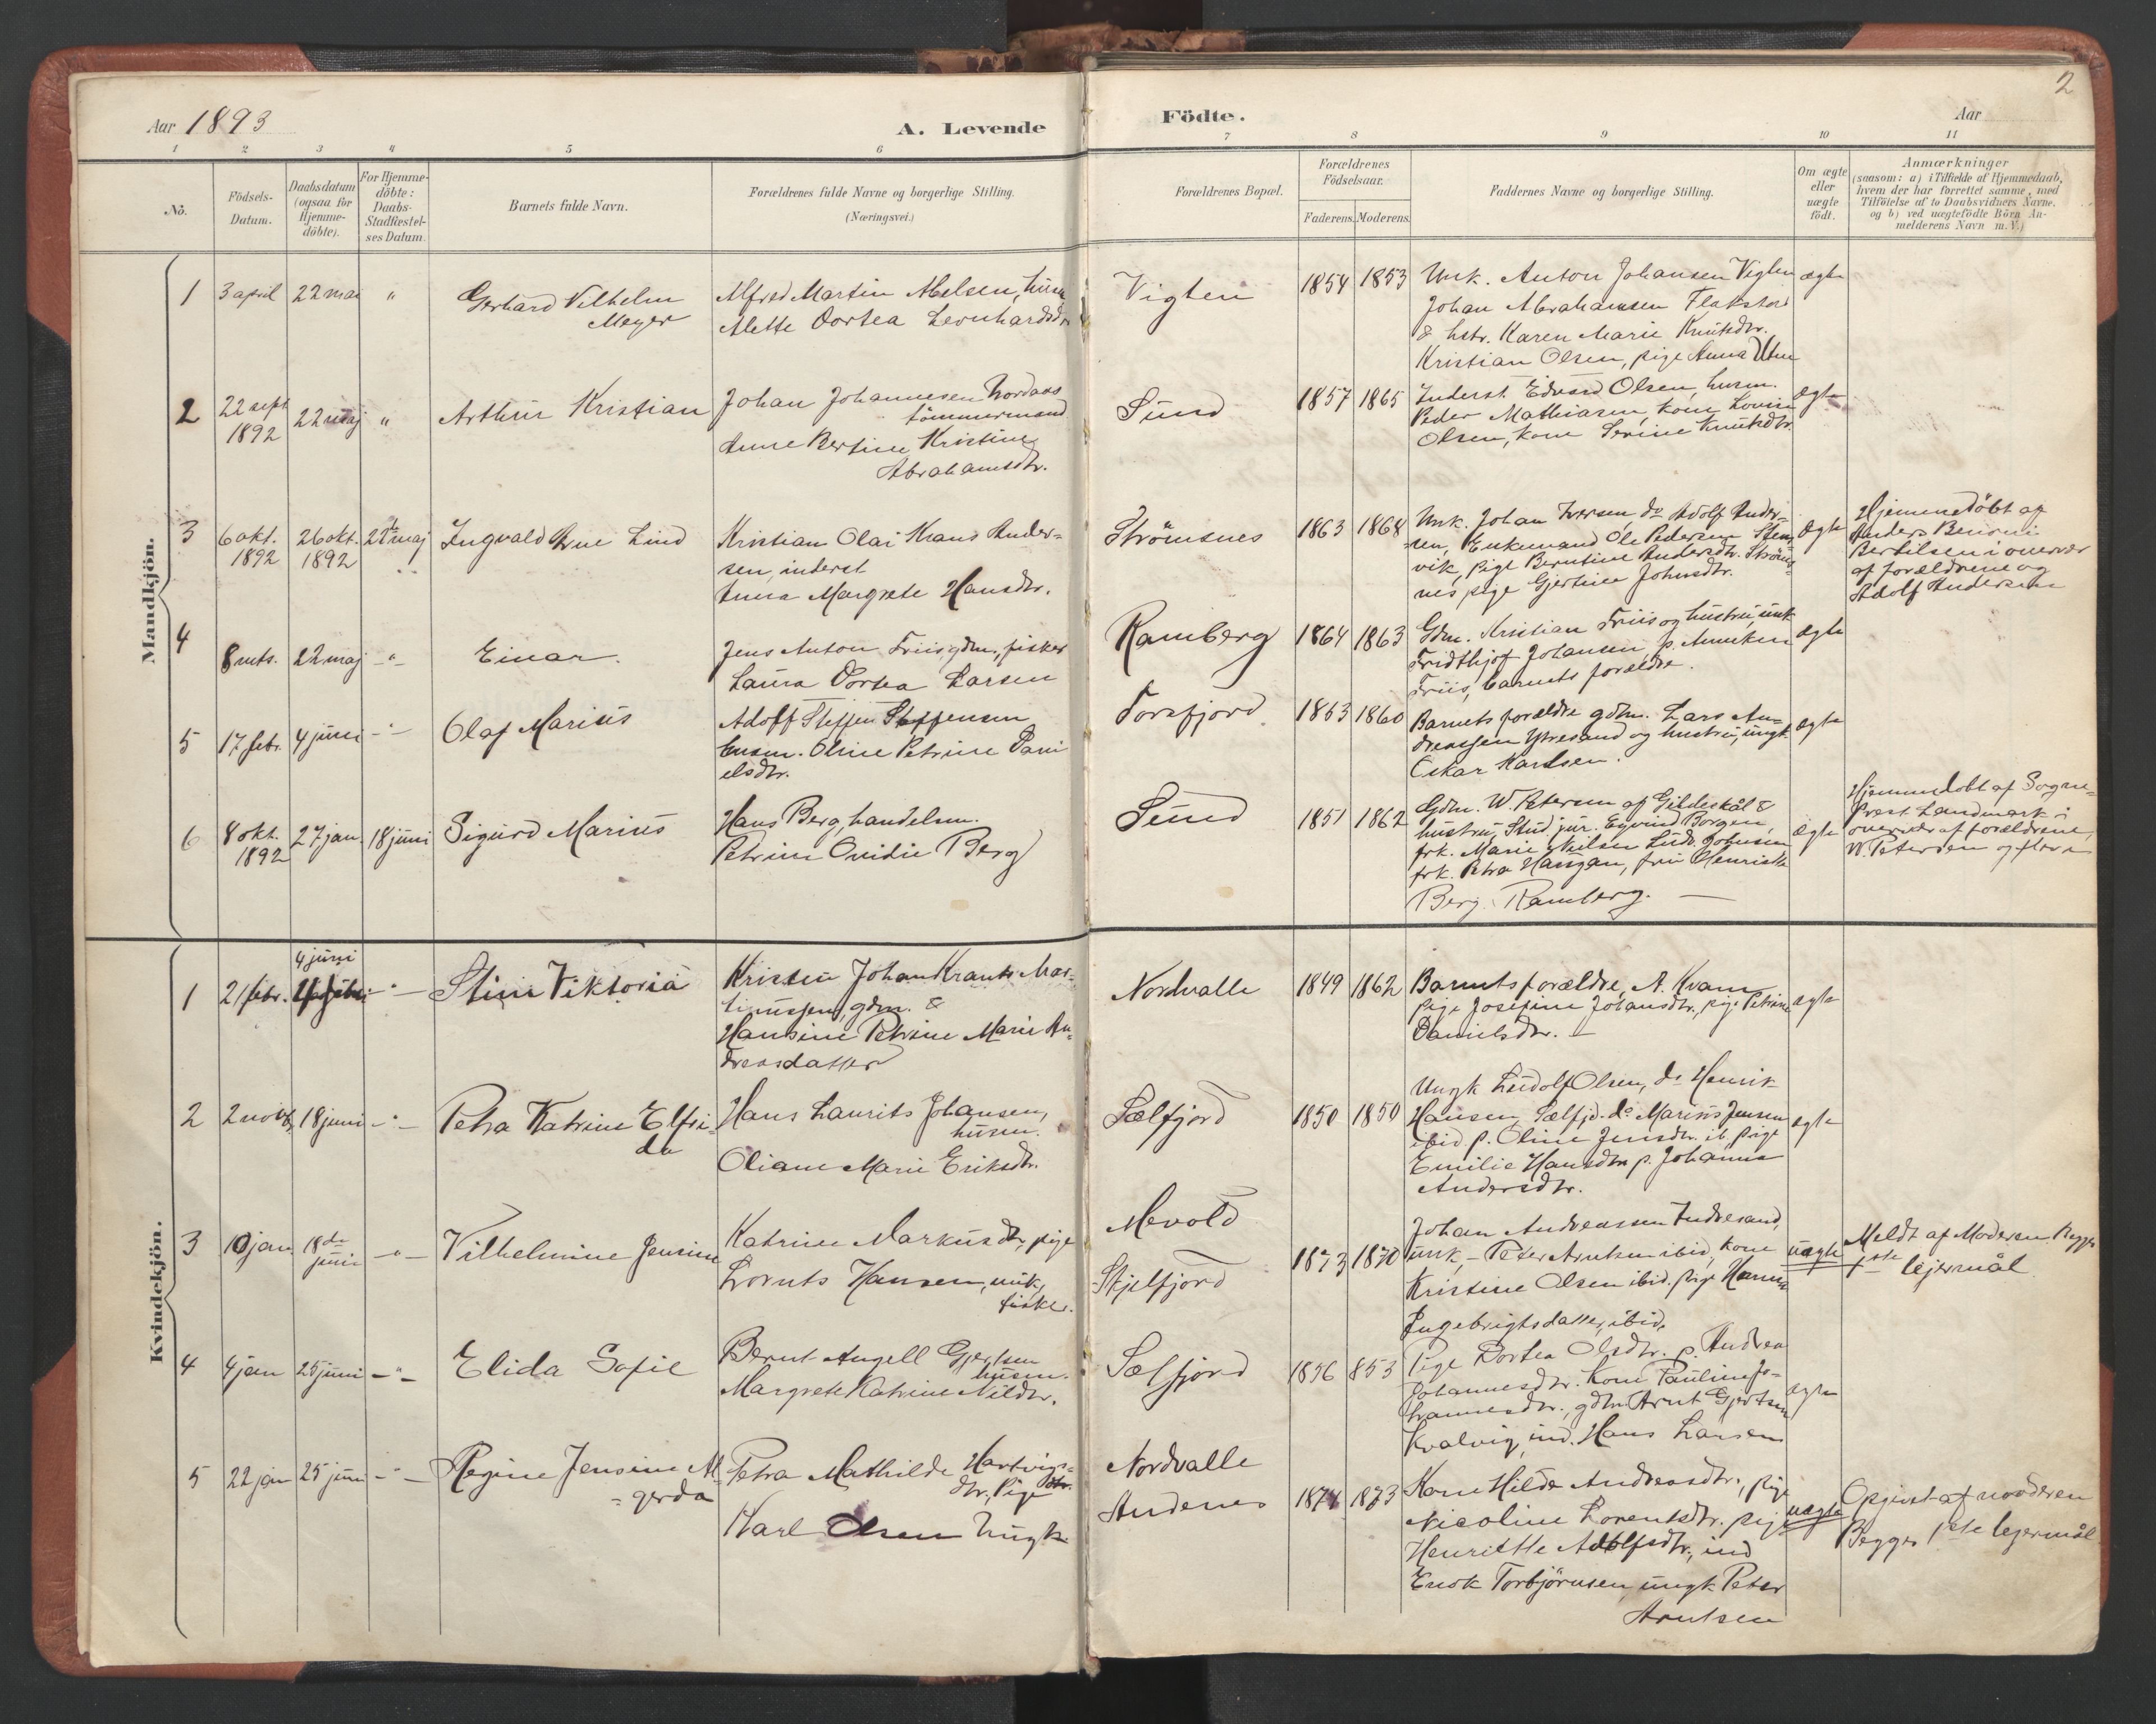 2
Aar 1893
A. Levende
Födte.
Aar
1 2 3 4 5 6 7 8 9 10 11
No.
Födsels-
Datum.
Daabsdatum
(ogsaa for
Hjemme-
döbte).
For Hjemme-
döbte:
Daabs-
Stadfæstel-
ses Datum.
Barnets fulde Navn.
Forældrenes fulde Navne og borgerlige Stilling.
(Næringsvei.)
Forældrenes Bopæl.
Forældrenes
Födselsaar.
Faderens. Moderens.
Faddernes Navne og borgerlige Stilling.
Om ægte
eller
uægte
födt.
Anmærkninger
(saasom: a) i Tilfælde af Hjemmedaab,
hvem der har forrettet samme, med
Tilföielse af to Daabsvidners Navne.
og b) ved uægtefödte Börn An-
melderens Navn m. V.)
Mandkjön.
1 3 april 22 mai "
Gerhard Vilhelm
Meyer
Alfred Martin Nilsen, husm
Mette Dortea Leonhardsdr
Vigten
1854 1853
Unk. Anton Johansen Vigten
Johan Abrahamsen Flakstad
& hstr. Karen Marie Knutsdtr.
Kristian Olsen, pige Anna
ægte
2 22 sept
1892
22 maj "
Arthur Kristian
Johan Johannesen Nordaas
tömmermand
Anne Bertine Kristine
Abrahamsdtr.
Sund
1857 1865
Inderst Edvard Olsen, husm.
Peder Mathiasen, kone Lovise
Olsen, kone Serine Knutsdtr.
Ægte
3 6 okt.
1892
26 okt.
1892
22 maj
Ingvald Arne Lind
Kristian Olai Krans Ander-
sen, inderst
Anna Margrete Hansdtr.
Strömsnes
1863 1868
Unk. Johan Iversen, do Adolf Ander-
sen, Enkemand Ole Pedersen Stens
vik, pige Berntine Andersdtr. Ströms-
nes, pige Gjertine Johnsdtr.
Ægte
Hjemmedöbt af
Anders Benoni
Bertilsen i overvær
af forældrene og
Adolf Andersen
4 8 mts. 22 maj -"-
Einar.
Jens Anton Friis gdm., fisker
Laura Dortea Larsen
Ramberg
1864 1863
Gdm. Kristian Friis og hustru, unk
Fridthjof Johansen, p. Anneken
Friis, barnets forældre.
ægte
5 17 febr. 4 juni -"-
Olaf Marius
Adolf Steffen Steffensen
husm. Oline Petrine Dani
elsdtr.
Torsfjord
1853 1860
Barnets forældre gdm. Lars An-
dreassen Ytresand og hustru, ungk
Oskar Karlsen.
ægte
6 8 okt.
1892
27 jan. 18 juni
Sigurd Marius
Hans Berg, handelsm.
Petrine Ovidie Berg
Sund
1851 1862
Gdm. W. Petersen af Gildeskål &
hustru, Stud. jur. Eyvind Borgen,
frk. Marie Nielsen Ludv. Johnsen
frk. Petra Hansen, fru Henrikke
Berg. Ramberg. —
Ægte
Hjemmedöbt af Sogne-
prest Landmark i
overvær af forældrene,
W. Petersen og flere
Kvindekjön.
1 21 febr.
4 juni
-"-
Stine Viktoria
Kristen Johan Krants Mar-
tinussen, gdm. &
Hansine Petrine Marie An-
dreasdatter
Nordvalle
1849 1862
Barnets forældre, A. Kvam
pige Josefine Johansdtr, pige Petrine
Danielsdtr. —
ægte
2 2 novb 18 juni -"-
Petra Katrine Elfri-
da
Hans Laurits Johansen,
husm.
Oliane Marie Eriksdtr.
Sælfjord
1850 1850
Ungk Ludolf Olsen, do Henrik
Hansen, Sælfjd. do Marius Jensen
ibid p. Oline Jensdtr. ib. pige
Emilie Hansdtr p. Johanna
Andersdtr.
ægte
3 10 jan 18de
juni
-"-
Vilhelmine Jensine
Katrine Markusdtr, pige
Lornts Hansen, unk,
fisker.
Mevold
Skjelfjord
1873 1870
Johan Andreassen Indresand,
unk. – Peter Arntsen ibid, kone
Kristine Olsen ibid. pige Hanna
Ingebrigtsdatter, ibid.
uægte
Meldt af Moderen. Begges
1ste lejermål
4 4 jan 25 juni -"-
Elida Sofie
Bernt Angell Gjertsen
husm.
Margrete Katrine Nilsdtr.
Sælfjord
1856 853
Pige Dortea Olsdtr. p. Andrea
Johannesdtr. Kone Pauline Jo-
hannesdtr., gdm. Arnt Gjertsen
Kvalvig, ind. Hans Larsen
ægte
5 22 jan 25 juni -"-
Regine Jensine Al-
gerda
Petra Mathilde Hartvigs-
dtr., Pige
Karl Olsen Ungk.
Nordvalle
Andenes
1874 1873
Kone Hilda Andreasdtr., pige
Nicoline Lorentsdtr. pige
Henriette Adolfsdtr., ind
Enok Torbjörnsen, ungk Peter
Arntsen
uægte
Opgivet af moderen
Begges 1ste lejermål